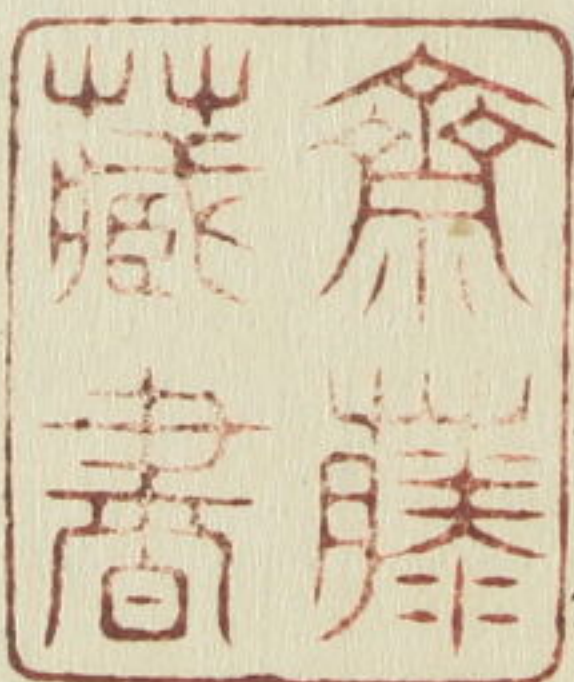 齋藤
藏書